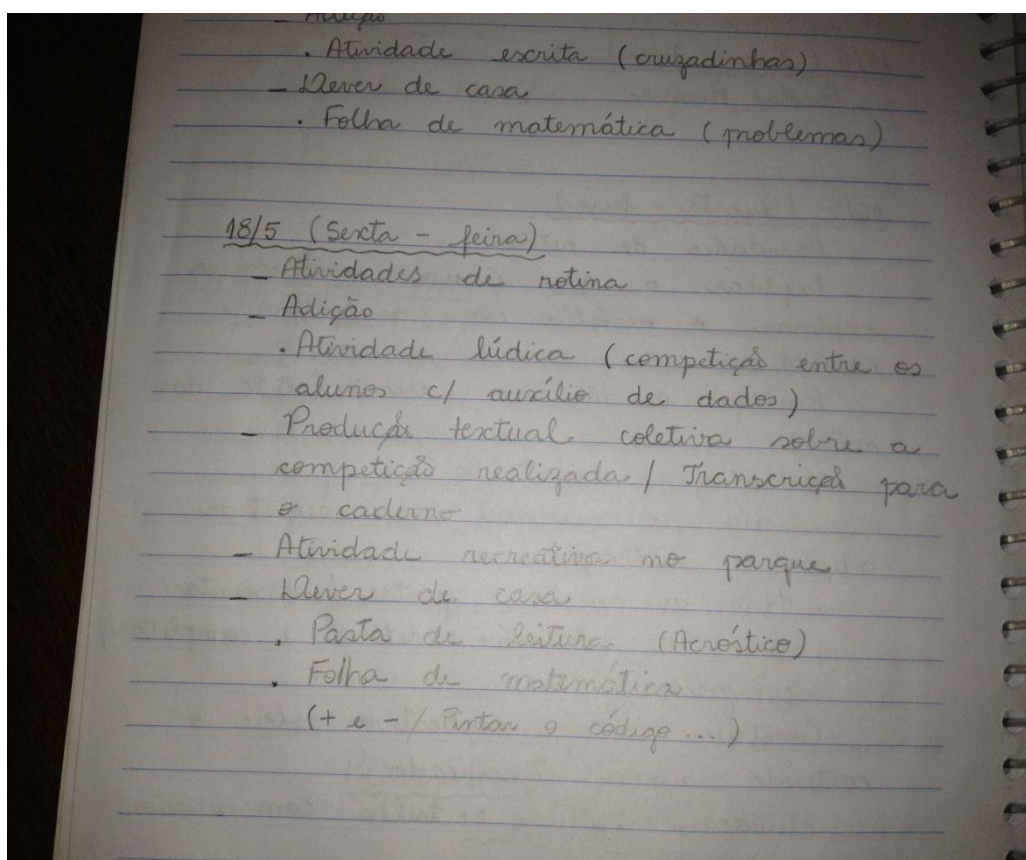 - Adição
. Atividade escrita (cruzadinhas)
- Dever de casa
. Folha de matemática (problemas)
18/5 (Sexta - feira)
- Atividades de rotina
- Adição
. Atividade lúdica (competição entre os
alunos c/ auxílio de dados)
- Produção textual coletiva sobre a
competição realizada / Transcrição para
o caderno
- Atividade recreativa no parque
- Dever de casa
. Pasta de leitura (Acróstico)
. Folha de matemática
(+ e - / Pintar o código ...)